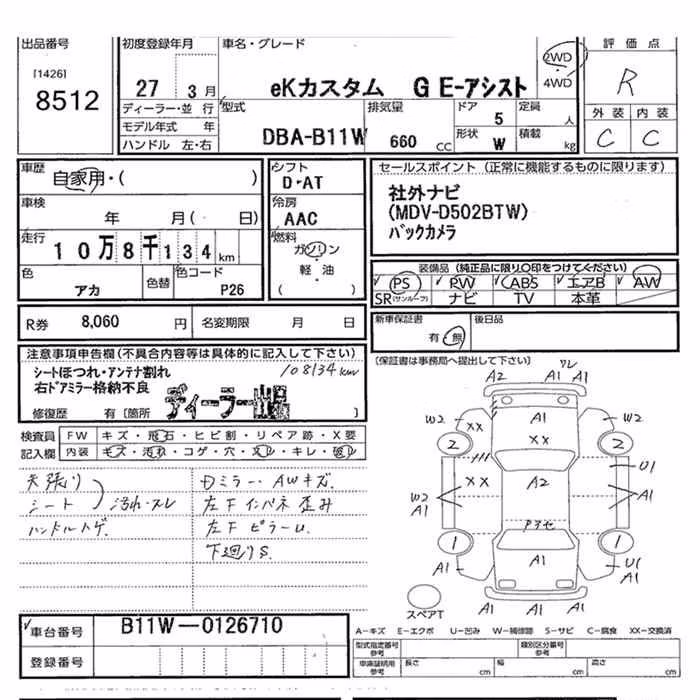 出品番号
[1426]
8512
初度登録年月
27 3 月
ディーラー・並 行
モデル年式 年
ハンドル 左・右
車名・グレード
eKカスタム G E-アシスト
2WD
4WD
型式
DBA-B11W
排気量
660 CC
ドア
5
形状
W
定員
人
積載
kg
評価点
R
外装 内装
C C
車歴
自家用・( )
車検
年 月( 日)
走行
10万8千134km
色
アカ
色替
色コード
P26
シフト
D・AT
冷房
AAC
燃料
ガソリン
軽・油
( )
セールスポイント (正常に機能するものに限ります)
社外ナビ
(MDV-D502BTW)
バックカメラ
装備品 (純正品に限り○印をつけてください)
PS PW ABS エアB AW
SR(サンルーフ) ナビ TV 本革
R券 8,060 円 名変期限 月 日
新車保証書
有・無
後日品
(保証書は事務局へ提出して下さい)
注意事項申告欄(不具合内容等は具体的に記入して下さい)
シートほつれ・アンテナ割れ
右ドアミラー格納不良
108134km
修復歴 有 [箇所 ディーラー出品 ]
検査員 FW キズ・飛石・ヒビ割・リペア跡・X要
記入欄 内装 キズ・汚れ・コゲ・穴・スレ・キレ・破レ
天張り
シート 汚れ・スレ
ハンドルハゲ
ドミラー・AWキズ
左下インパネ歪み
左下ピラーU
下廻りS
ワレ
A2 A1 A1
W2 XX A1 XX W2
2 2
XX A2 U1
W2 A1 A1
アヨセ
1 1
A1 A1 U1 A1
スペアT
A1 A1 A1
車台番号 B11W-0126710
登録番号
A-キズ E-エクボ U-凹み W-補修跡 S-サビ C-腐食 XX-交換済
型式指定番号 参考
類別区分番号 参考
車庫証明用 参考
長さ cm 幅 cm 高さ cm